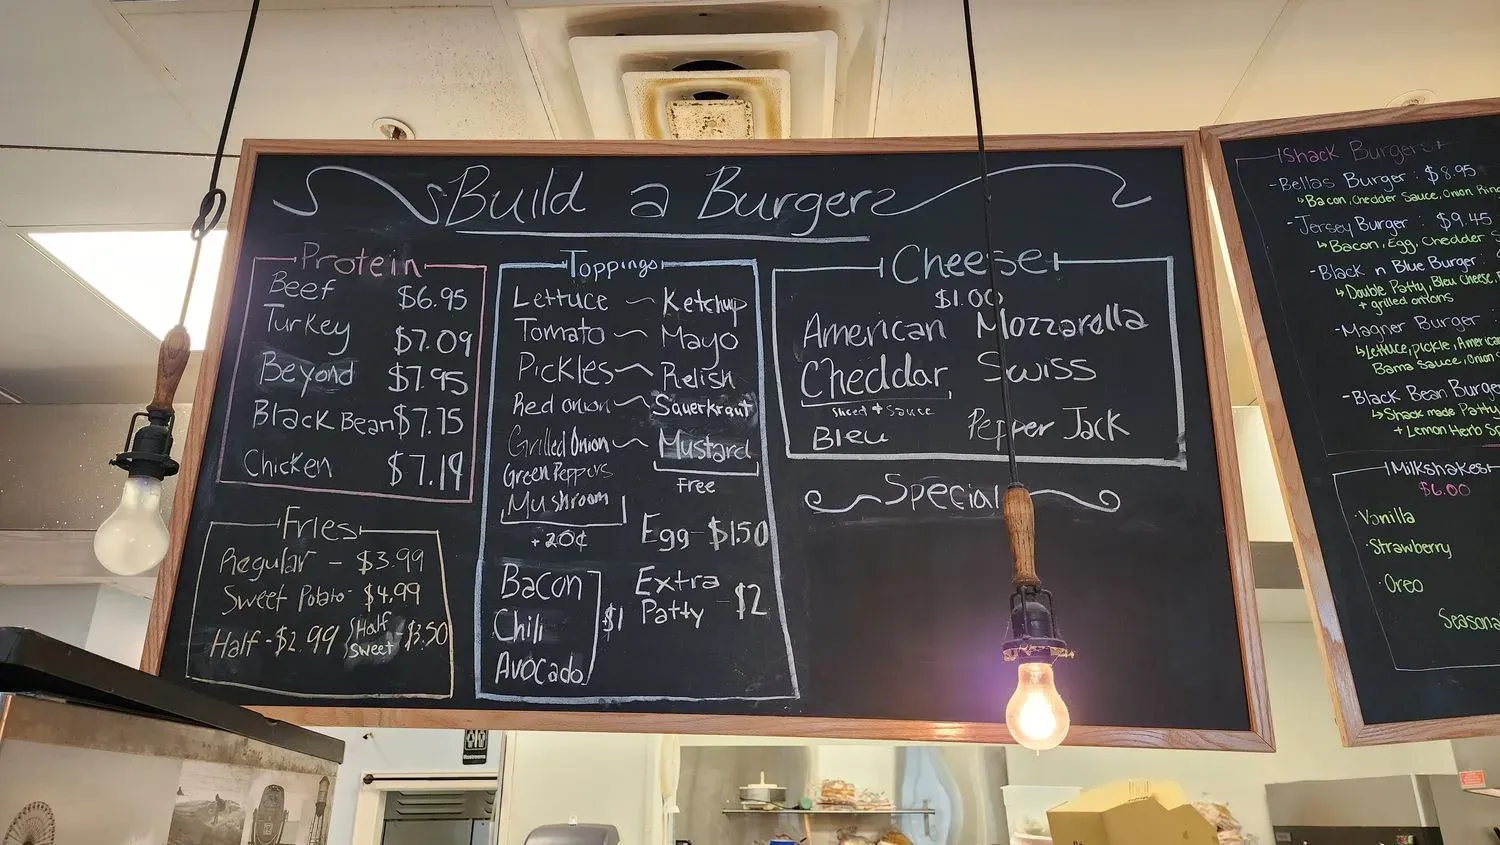 Build a Burger
Protein
Beef $6.95
Turkey $7.09
Beyond $7.95
Black Bean $7.75
Chicken $7.19
Fries
Regular - $3.99
Sweet Potato - $4.99
Half - $2.99 Half Sweet - $3.50
Toppings
Lettuce ~ Ketchup
Tomato ~ Mayo
Pickles ~ Relish
Red onion ~ Sauerkraut
Grilled Onion ~ Mustard
Green Peppers
Mushroom
Free
+20¢
Egg - $1.50
Bacon
Chili
Avocado
$1
Extra Patty - $2
Cheese
$1.00
American Mozzarella
Cheddar Swiss
Sliced + Sauce
Bleu Pepper Jack
Special
Shack Burgers
- Bellas Burger : $8.95
Bacon, Chedder Sauce, Onion
- Jersey Burger : $9.45
Bacon, Egg, Chedder
- Black n Blue Burger :
Double Patty, Bleu Cheese,
+ grilled onions
- Magner Burger :
Lettuce, pickle, American
Bama Sauce, Onion
- Black Bean Burger
Shack made Patty
+ Lemon Herb
Milkshakes
$6.00
· Vanilla
· Strawberry
· Oreo
Restrooms